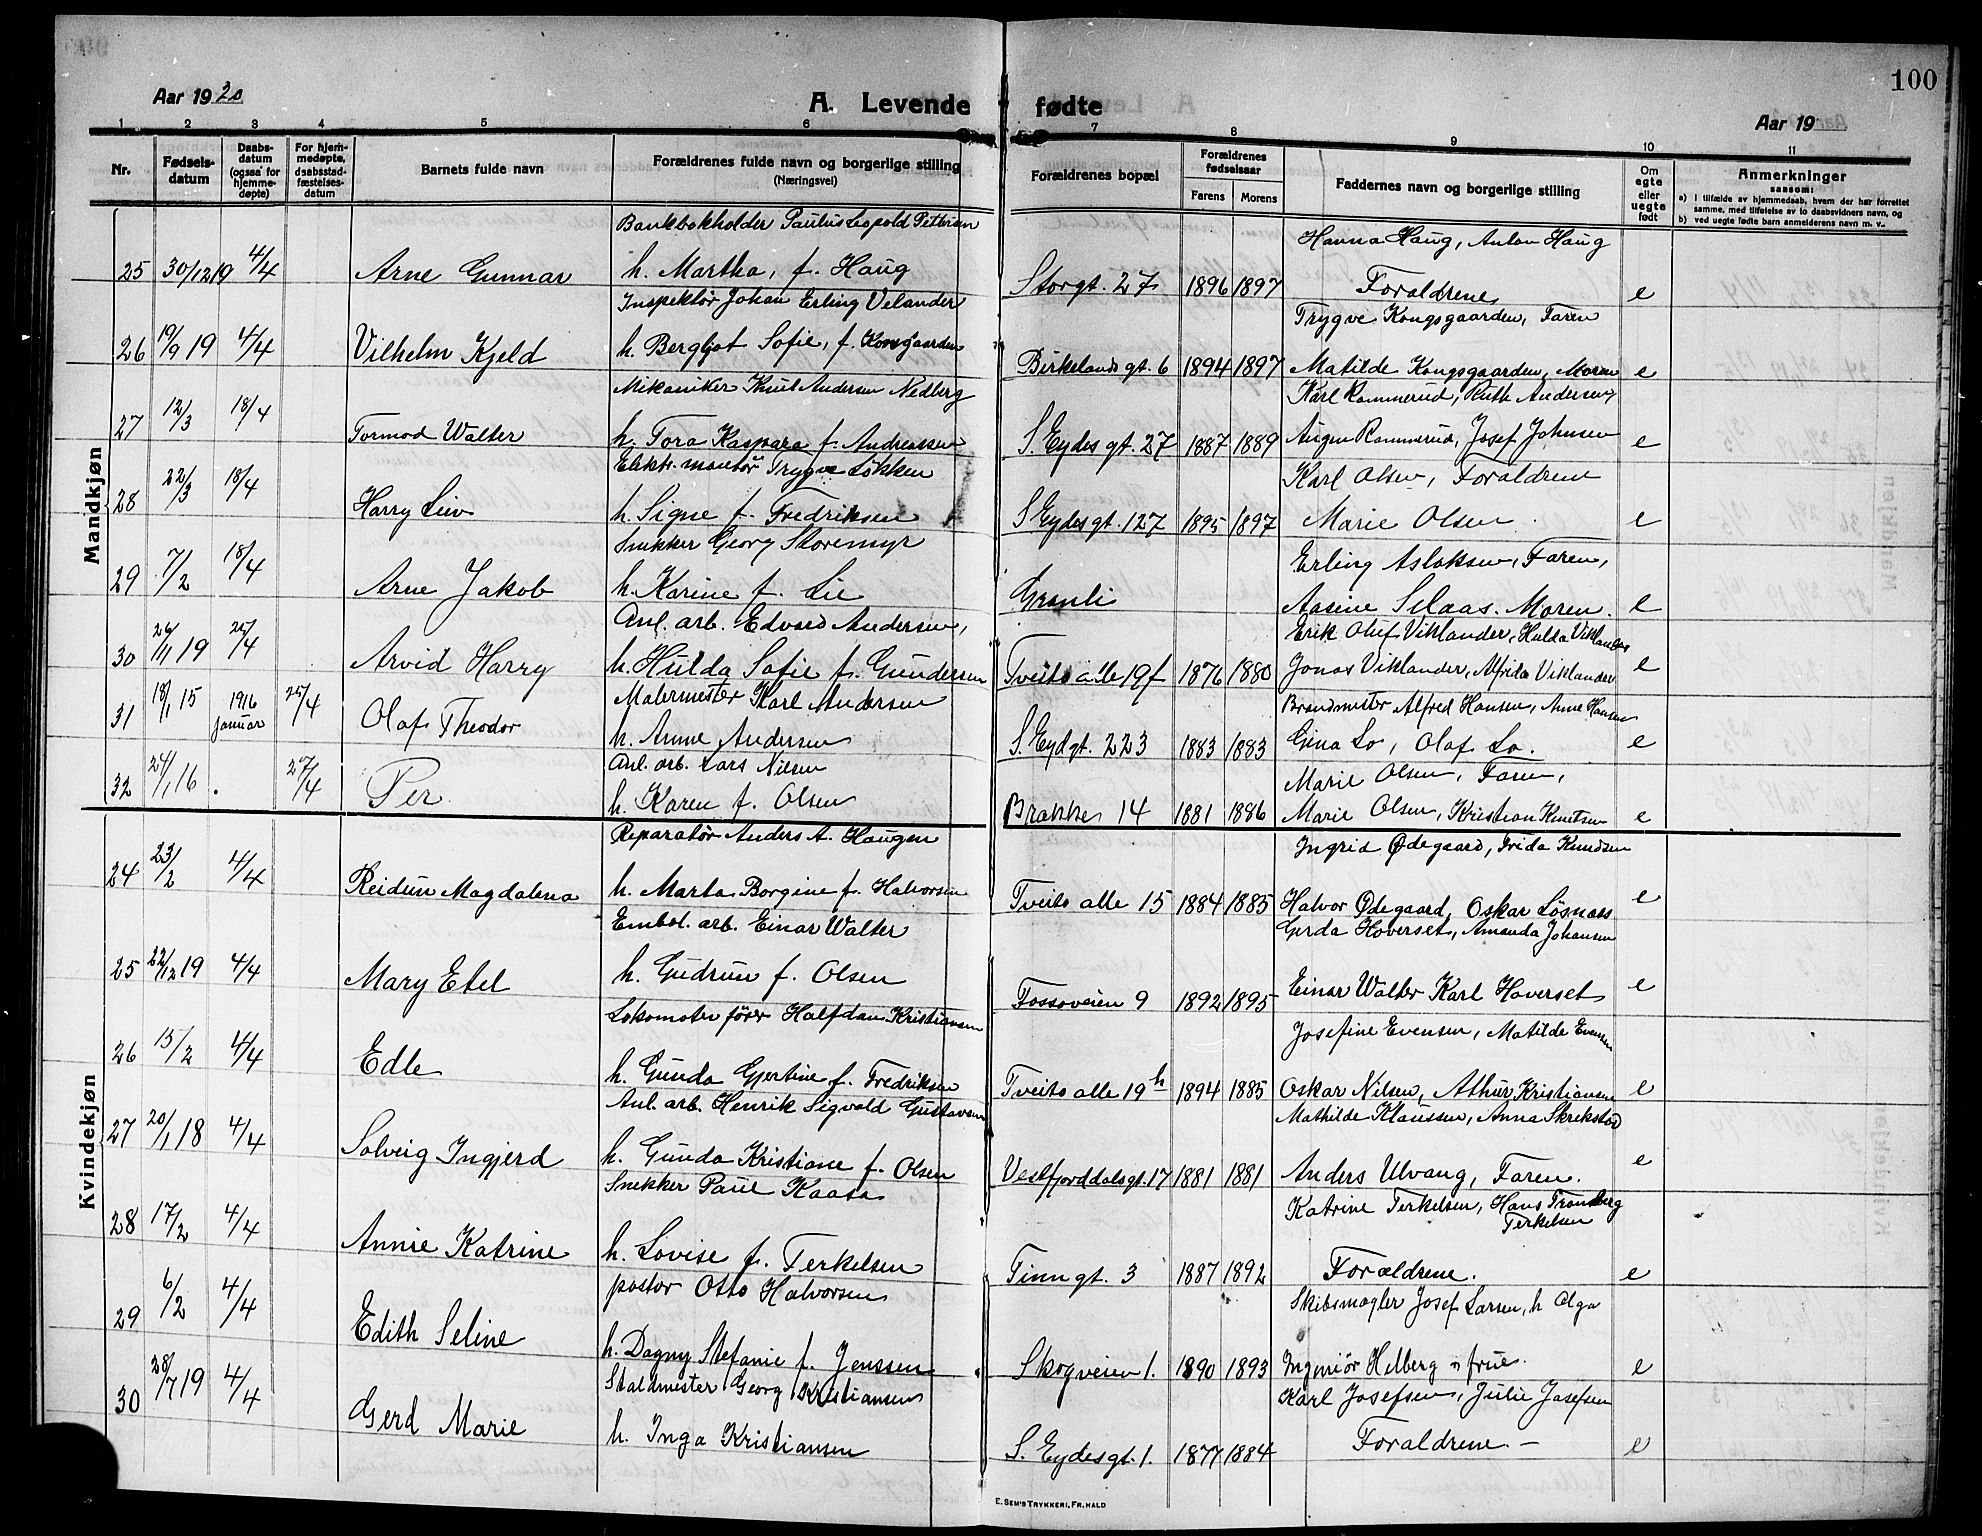 100
Aar 1920
A. Levende fødte
Aar 19
1 2 3 4 5 6 7 8 9 10 11
Nr. Fødselsdatum Daabsdatum (ogsaa for hjemmedøpte) For hjemmedøpte, daabsstadfæstelsesdatum Barnets fulde navn Forældrenes fulde navn og borgerlige stilling (Næringsvei) Forældrenes bopæl Forældrenes fødselsaar Farens Morens Faddernes navn og borgerlige stilling Om egte eller uegte født Anmerkninger
saasom:
a) I tilfælde av hjemmedaab, hvem der har forrettet samme, med tilføielse av to daabsvidners navn, og
b) ved uegte fødte barn anmelderens navn m. v.
Mandkjøn
Bankbokholder Paulus Leopold Pettersen Hanna Haug, Anton Haug
25 30/12 19 4/4 Arne Gunnar h. Martha, f. Haug Storgt. 27 1896 1897 Foraldrene e
Inspektør Johan Erling Velander Trygve Kongsgaarden, Faren
26 19/9 19 4/4 Vilhelm Kjeld h. Bergljot Sofie, f. Konsgaarden Birkelands gt. 6 1894 1897 Matilde Kongsgaarden, Moren e
Mikaniker Knut Andersen Nedberg Karl Rommerud, Ruth Andersen,
27 12/3 18/4 Tormod Walter h. Tora Kaspara f. Andreassen S. Eydes gt. 27 1887 1889 Rommerud, Josef Johnsen e
Elektr. montør Trygve Løkken Karl Olsen, Foraldrene
28 22/3 18/4 Harry Liiv h. Signe f. Fredriksen S Eydes gt. 127 1895 1897 Marie Olsen. e
Snekker Georg Storemyr Erling Aslaksen, Faren,
29 7/2 18/4 Arne Jakob h. Karine f. Lie Granli Aasine Selaas. Moren. e
Anl. arb. Edvard Andersen, Erik Olaf Viklander, Hulda Viklander
30 26/11 19 25/4 Arvid Harry h. Hulda Sofie f. Gundersen Tveito alle 19f 1876 1880 Jonas Viklander, Alfrida Viklander e
Malermester Karl Andersen Brandmester Alfred Hansen, Anne Hansen
31 18/1 15 1916 januar 25/4 Olaf Theodor h. Anne Andersen S. Eydgt. 223 1883 1883 Gina Lo, Olaf Lo. e
Anl. arb. Lars Nilsen Marie Olsen, Faren,
32 24/1 16. 27/4 Per h. Karen f. Olsen Brakke 14 1881 1886 Marie Olsen, Kristian Knutsen e
Kvindekjøn
Reparatør Anders A. Haugen Ingrid Ødegaard, Frida Knudsen
24 23/2 4/4 Reidun Magdalena h. Marta Borgine f. Halvorsen Tveito alle 15 1884 1885 Halvor Ødegaard, Oskar Løsnæs e
Embal. arb. Einar Walter Gerda Hoverset, Amanda Johansen
25 22/12 19 4/4 Mary Etel h. Gudrun f. Olsen Fossoveien 9 1892 1895 Einar Walter Karl Hoverset e
Lokomotivfører Halfdan Kristiansen Josefine Evensen, Matilde Evensen
26 15/2 4/4 Edle h. Gunda Gjertine f. Fredriksen Tveito alle 19h 1894 1885 Oskar Nilsen, Athur Kristiansen e
Anl. arb. Henrik Sigvald Gustavsen Mathilde Klaussen, Anna Skrikstad
27 20/1 18 4/4 Solveig Ingjerd h. Gunda Kristiane f. Olsen Vestfjorddalsgt. 17 1881 1881 Anders Ulvang, Faren. e
Snekker Paul Kaasa Katrine Terkelsen, Hans Tronsberg Terkelsen
28 17/2 4/4 Annie Katrine h. Lovise f. Terkelsen Tinn gt. 3 1887 1892 Forældrene. e
pastor Otto Halvorsen Skibsmægler Josef Larsen, h Olga
29 6/2 4/4 Edith Seline h. Dagny Stefanie f. Jenssen Skogveien 1. 1890 1893 Ingeniør Helberg frue. e
Staldmester Georg Kristiansen Karl Josefsen, Julie Josefsen
30 28/7 19 4/4 Gerd Marie h. Inga Kristiansen S. Eydesgt. 1. 1877 1884 Foraldrene. – e
E. SEM'S TRYKKERI, FR.HALD